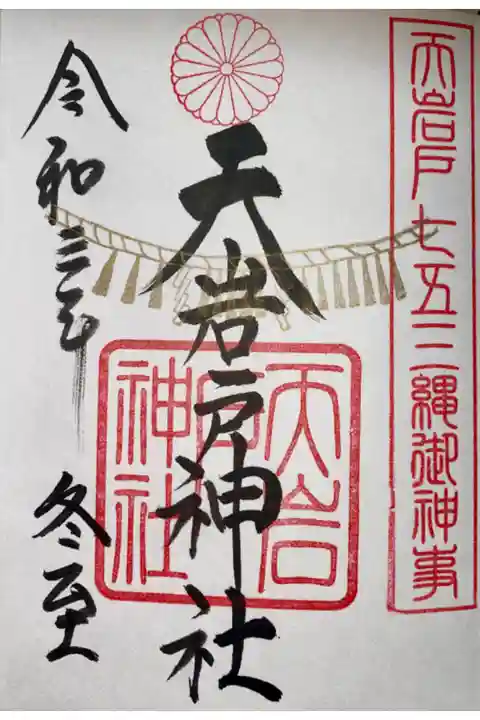 天岩戸七五三縄御神事
天岩戸神社
天岩戸神社
令和三年
冬至